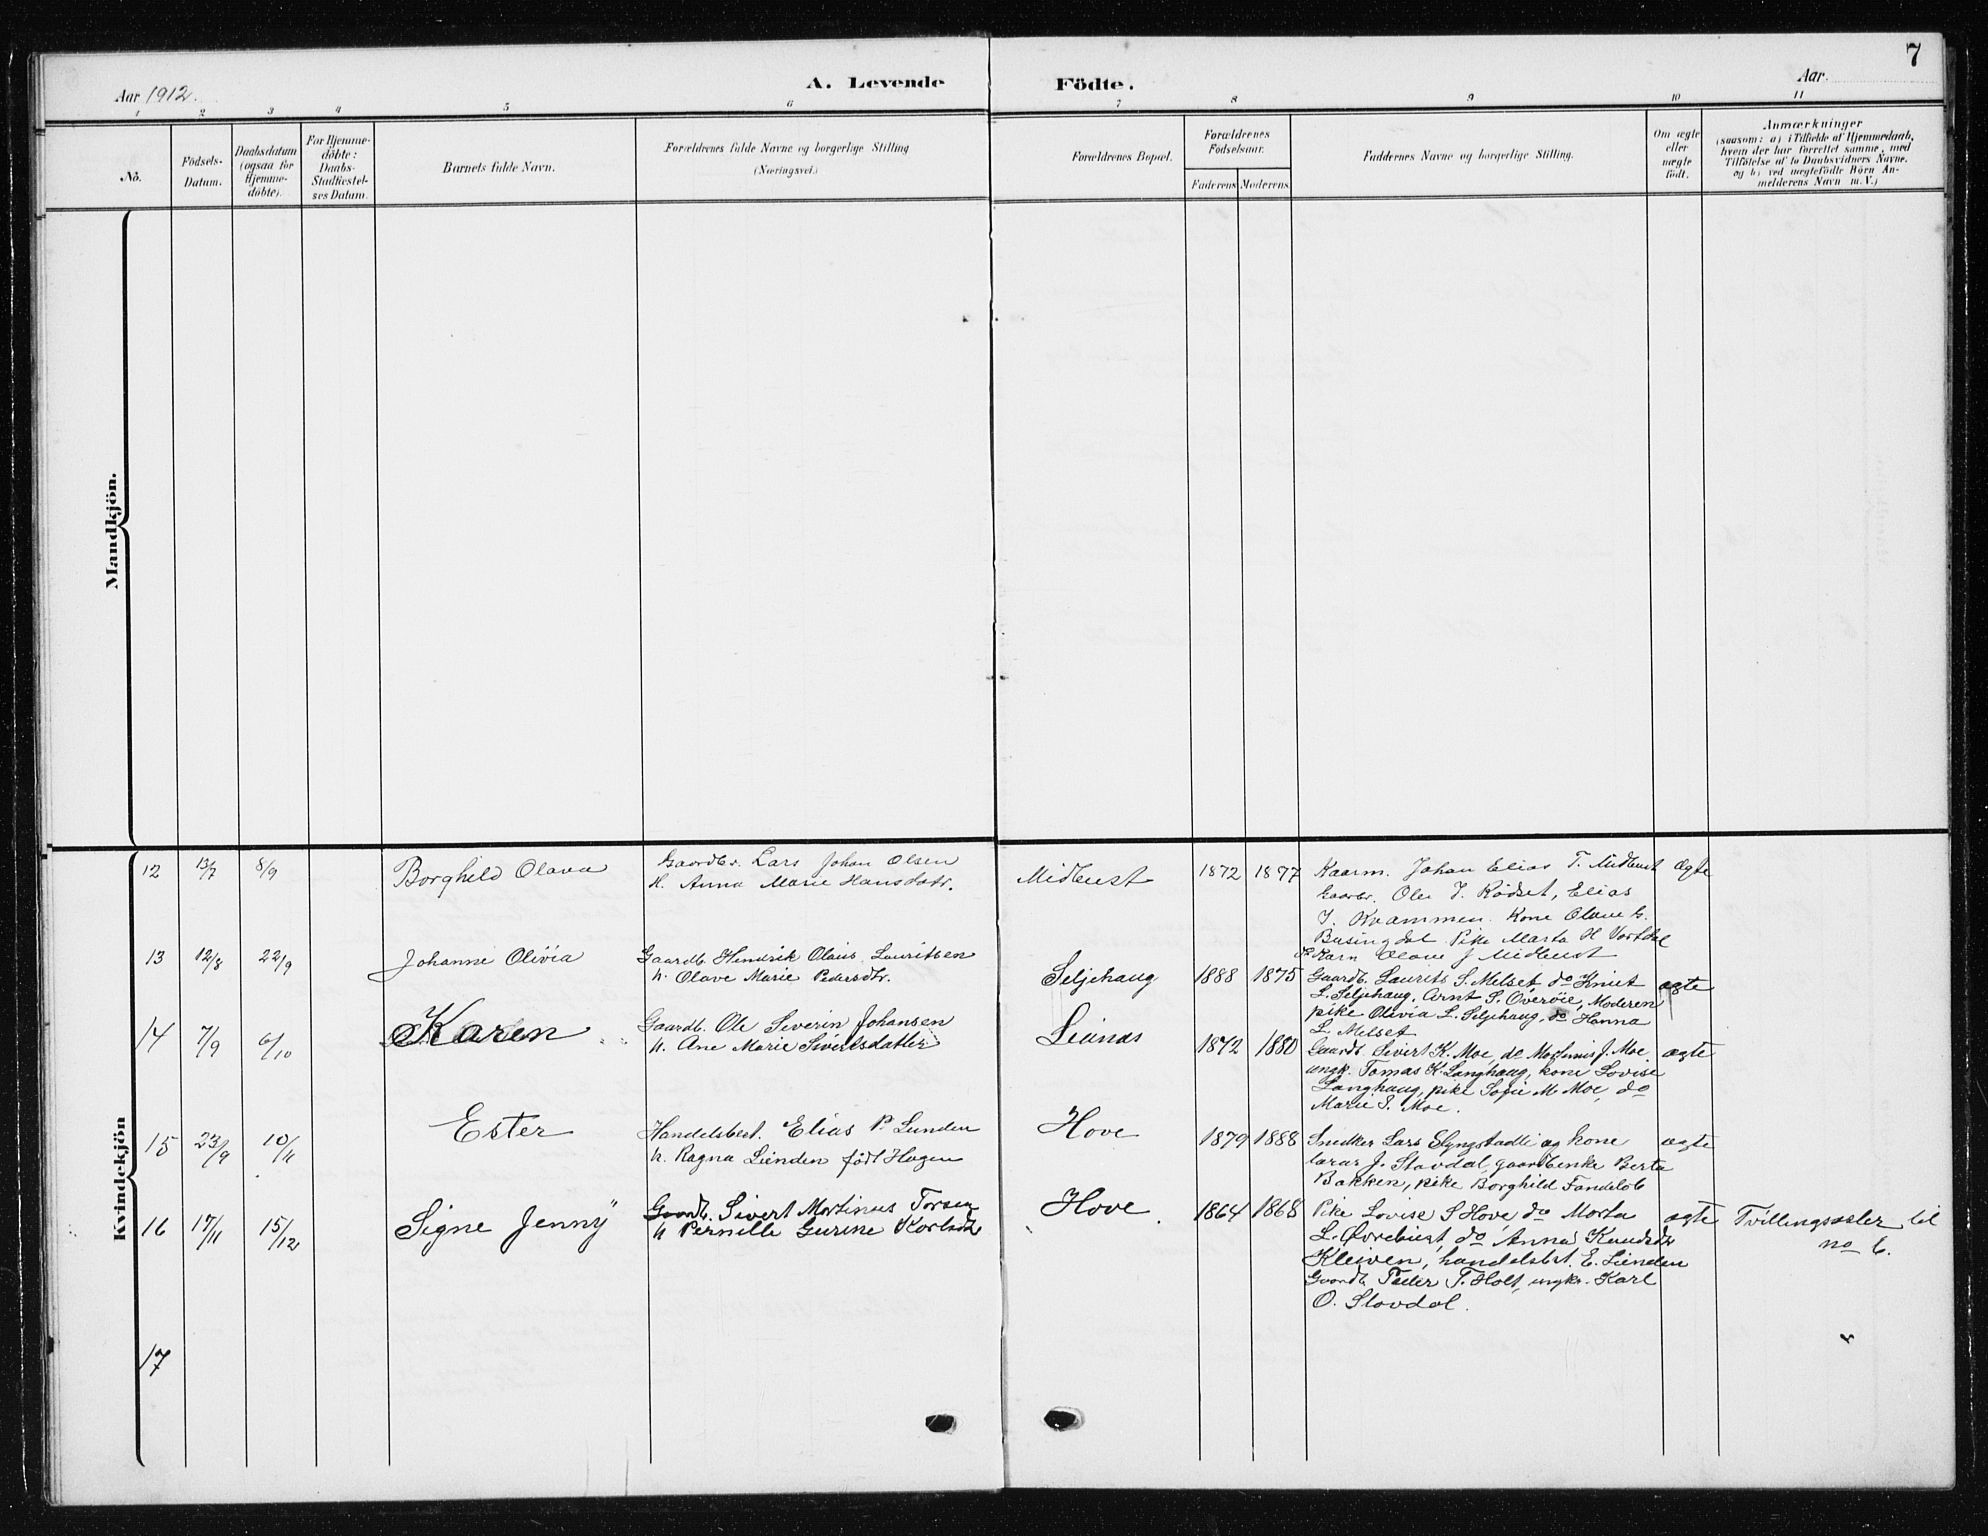 7
Aar 1912.
A. Levende Födte.
Aar.
1 2 3 4 5 6 7 8 9 10 11
No.
Födsels-Datum.
Daabsdatum (ogsaa for Hjemme-döbte).
For Hjemme-döbte: Daabs-Stadfæstel-ses Datum.
Barnets fulde Navn.
Forældrenes fulde Navne og borgerlige Stilling
(Næringsvei.)
Forældrenes Bopæl.
Forældrenes Födselsaar.
Faderens Moderens
Faddernes Navne og borgerlige Stilling.
Om ægte eller uægte födt.
Anmærkninger
(saasom: a) i Tilfælde af Hjemmedaab,
hvem der har forrettet samme, med
Tilföielse af to Daabsvidners Navne.
og b) ved uægtefödte Börn An-
melderens Navn m. V.)
Mandkjön.
Kvindekjön
12 13/7 8/9 Borghild Olava
Gaardbr. Lars Johan Olsen
H. Anna Marie Hansdatr.
Midtust 1872 1877
Kaarm. Johan Elias T. Midtust
Gaardbr. Ole J. Rödset, Elias
J. Kvammen. Kone Olave
Busingdal Pike Marta H Vortdal
Karn Olave J Midtust
ægte
13 12/8 22/9 Johanne Olivia
Gaardb Hendrik Olaus Lauritsen
h. Olave Marie Pedersdtr.
Seljehaug 1888 1875
Gaardb. Laurits S. Melset, do Knut
L. Seljehaug, Arnt S. Overöie, Moderen
pike Olivia L. Seljehaug, do Hanna
L. Melset
ægte
14 7/9 6/10 Karen
Gaardb. Ole Severin Johansen
h. Ane Marie Sivertsdatter
Lianas 1872 1880
Gaardb. Sivert K. Moe, do Martinus J. Moe
ungk. Tomas K Langhaug, kone Lovise
Langhaug, pike Sofie M Moe, do
Marie S. Moe.
ægte
15 23/9 10/11 Ester
Handelsbest. Elias P. Lunden
h. Ragna Lunden född Hagen
Hove 1879 1888
Snedker Lars Slyngstadli og kone
J. Stavdal, gaardbenke Berta
Bakken, pike Borghild Fandelöb
ægte
16 17/11 15/12 Signe Jenny
Gaardb. Sivert Martinus Torsen
h Pernille Gurine
Hove 1864 1868
Pike Lovise S Hove, do Marta
L. Øvrebust, do Anna Knudsdtr
Kleiven, handelsbst. E. Lunden
Gaardb. Peder T. Holt, ungkr. Karl
O. Stavdal.
ægte
Tvillingsøster til
no 6.
17